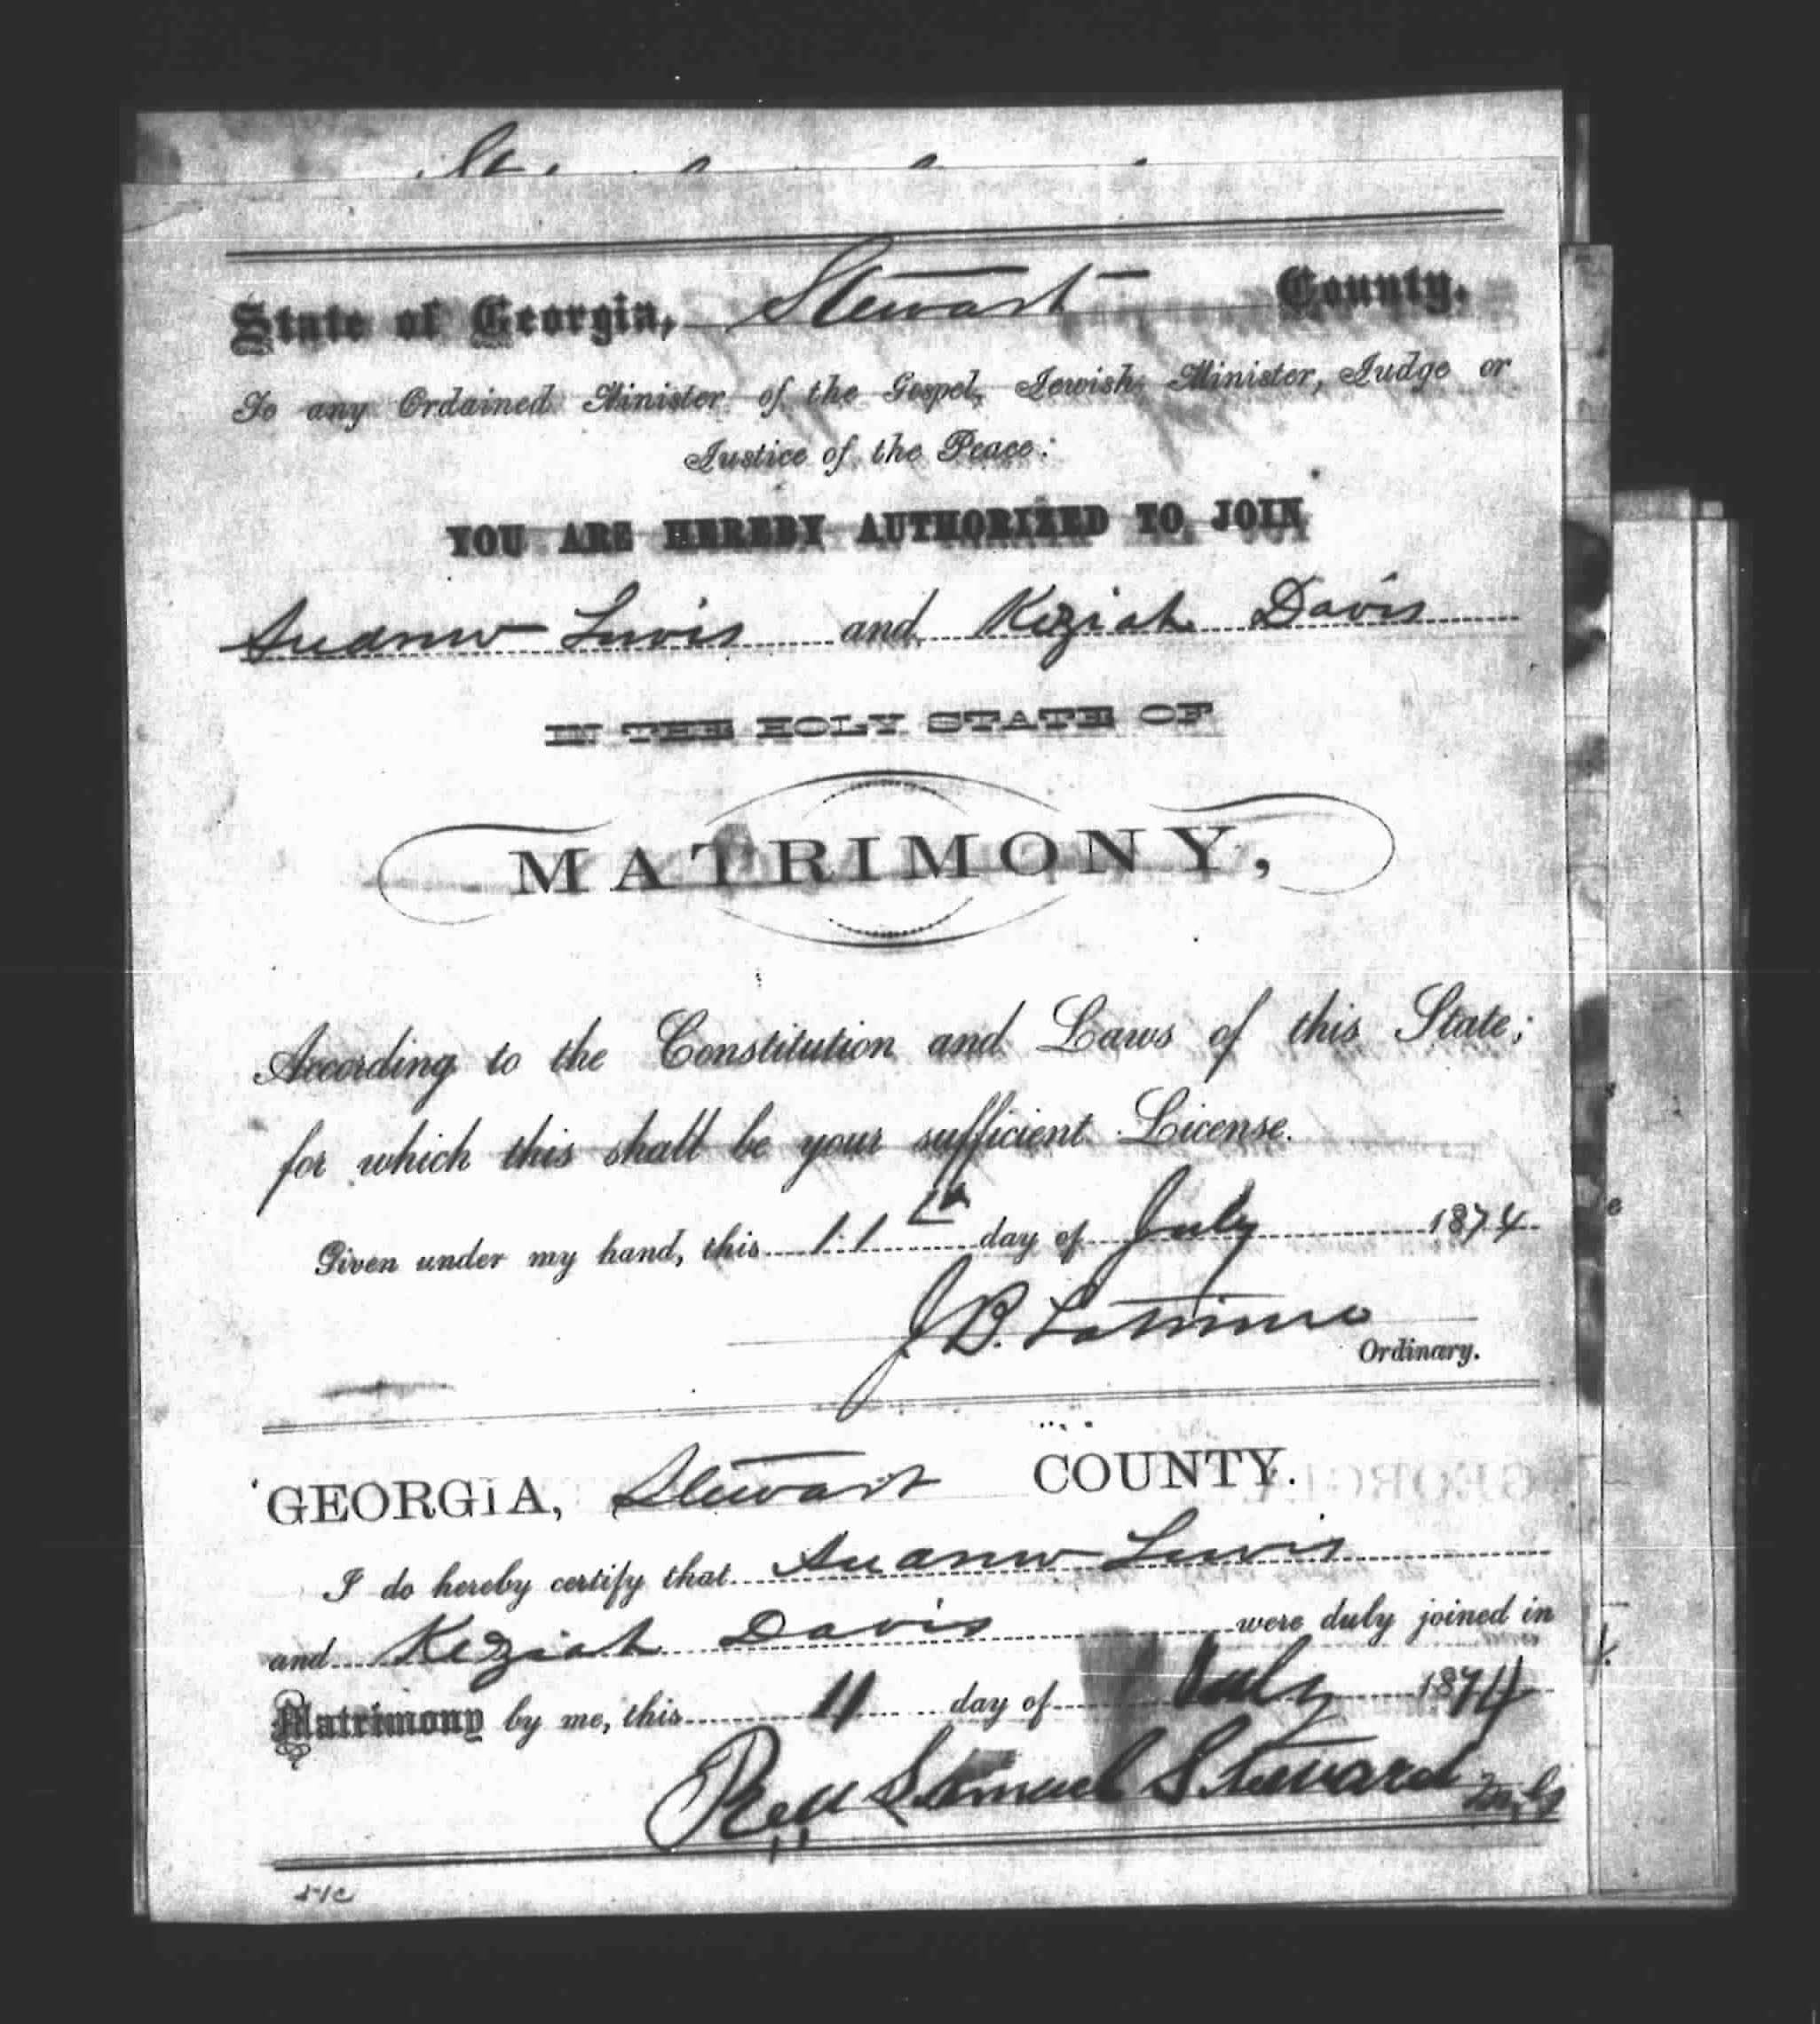 State of Georgia, Stewart County.
To any Ordained Minister of the Gospel, Jewish Minister, Judge or
Justice of the Peace:
YOU ARE HEREBY AUTHORIZED TO JOIN
Andrew Lewis and Keziah Davis
IN THE HOLY STATE OF
MATRIMONY,
According to the Constitution and Laws of this State;
for which this shall be your sufficient License.
Given under my hand, this 11th day of July 1874
J.B. Latimer
Ordinary.
GEORGIA, Stewart COUNTY.
I do hereby certify that Andrew Lewis
and Keziah Davis were duly joined in
Matrimony by me, this 11 day of July 1874
Rev Samuel Steward